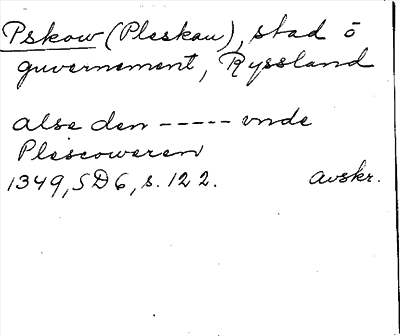 Pskow (Pleskau), stad o
guvernement, Ryssland
alse den ----- vnde
Plescoweren
1349, SD6, s. 122. avskr.